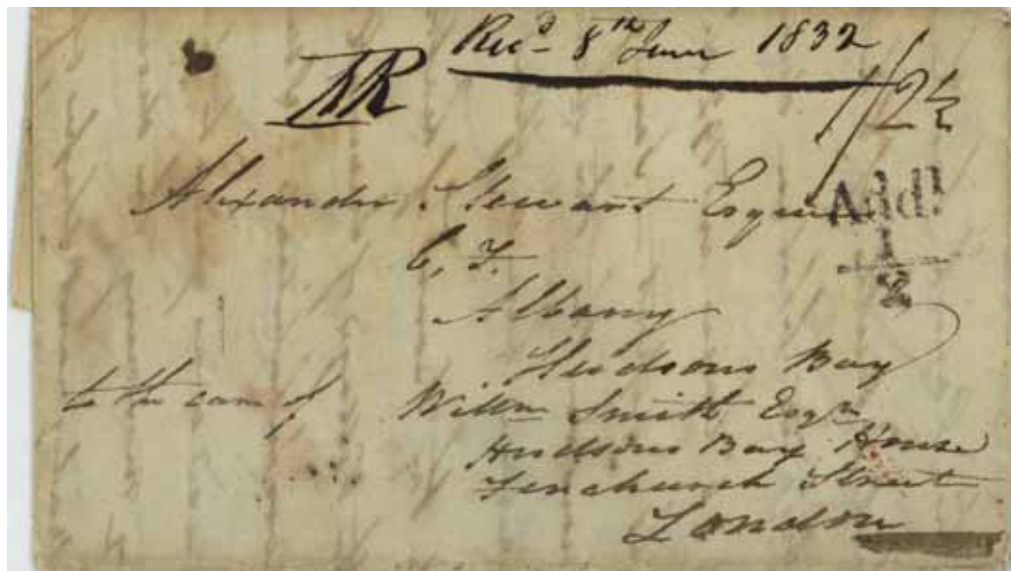 Rec.d 8th June 1832
1/2½
Alexander Stewart Esquire
Add!
1/2
C, F.
Albany
Hudsons Bay
to the care of Willm Smith Esqr
Hudsons Bay House
Fenchurch Street
London